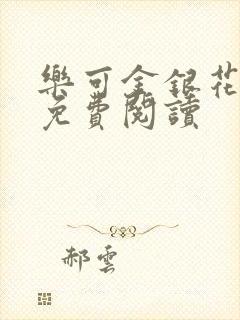 樂可金銀花
免費閱讀
郝雲